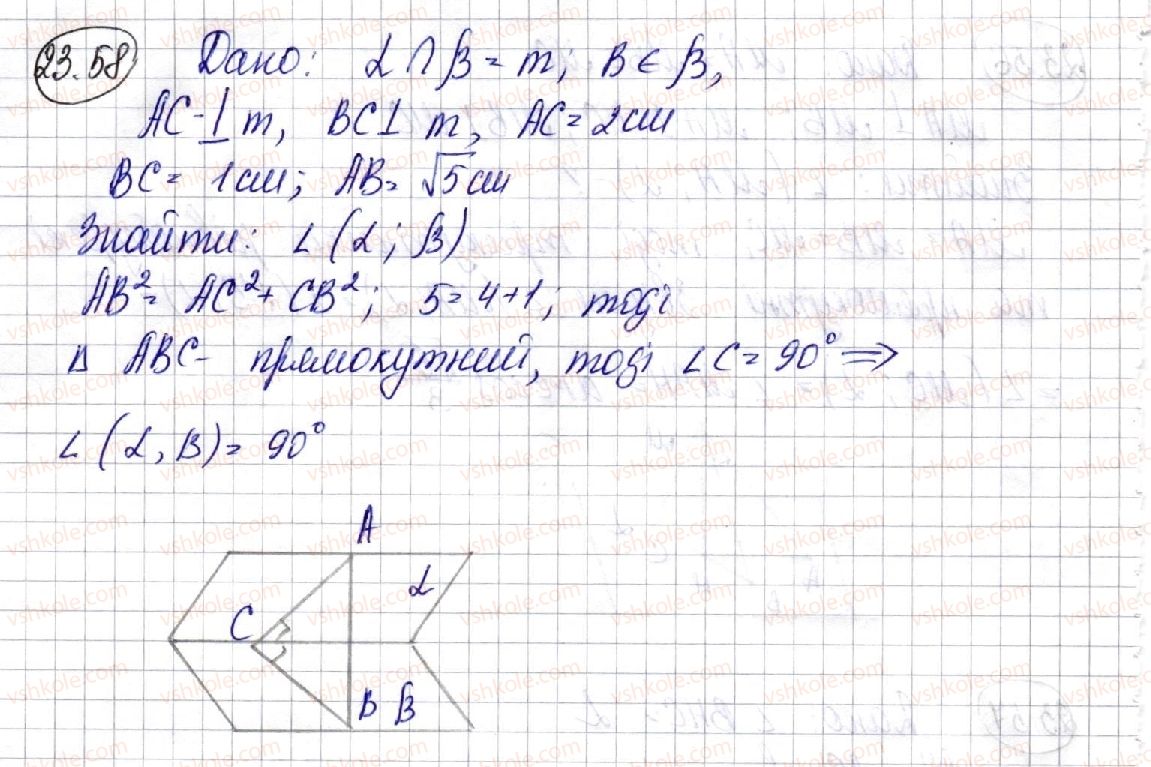 23.58 Дано: α ∩ β = m; B ∈ β,
AC ⊥ m, BC ⊥ m, AC = 2 см
BC = 1 см; AB = √5 см
Знайти: ∠(α; β)
AB² = AC² + CB²; 5 = 4 + 1; тоді
Δ ABC - прямокутний, тоді ∠C = 90° ⇒
∠(α, β) = 90°
A
α
C
B β